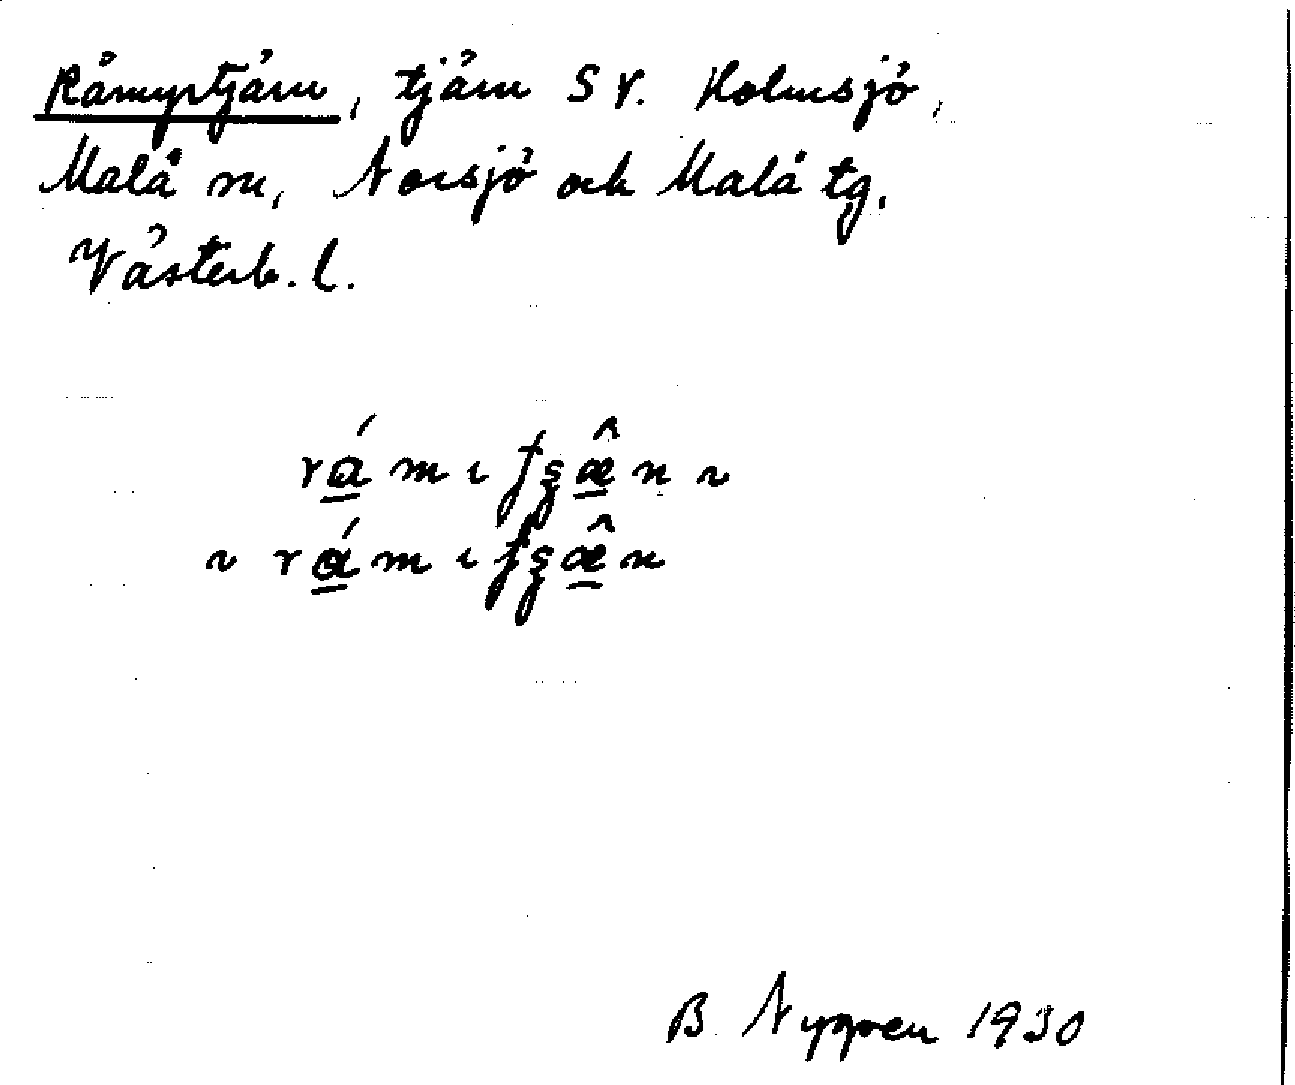 Råmyrtjärn, tjärn SV. Holmsjö,
Malå sn, Norsjö och Malå tg.
Västerb. l.
B. Nygren 1930